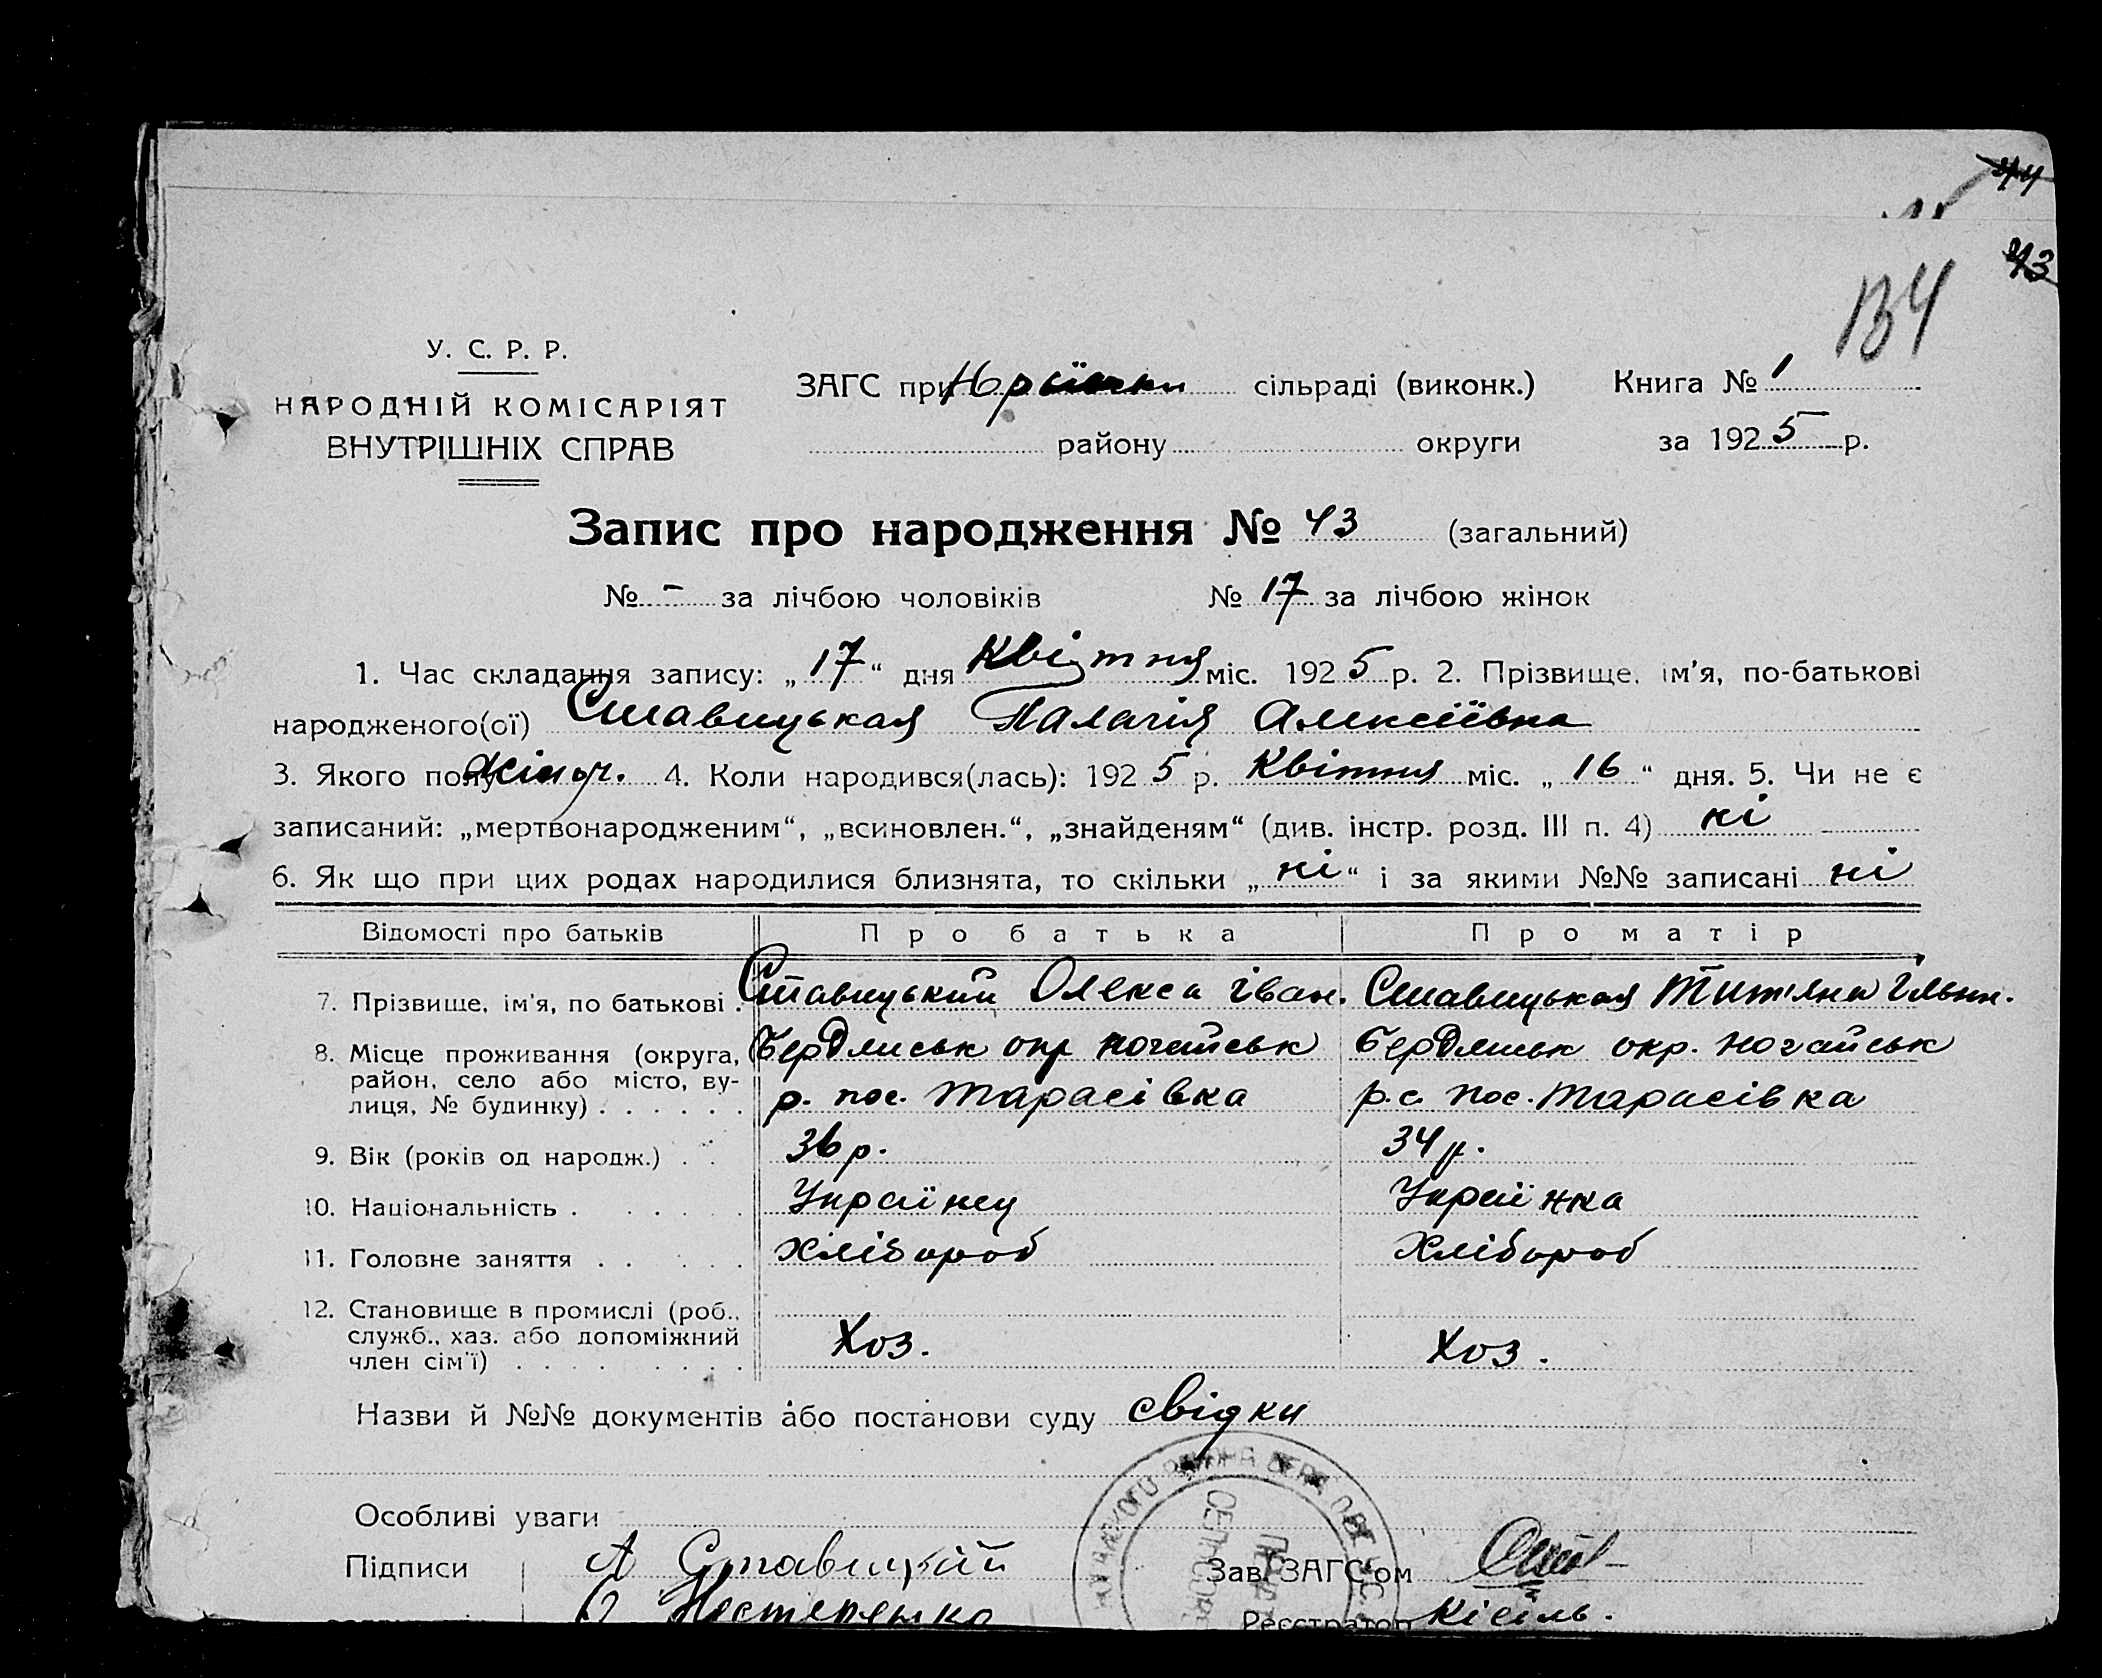 44
43
134
У. С. Р. Р.
НАРОДНІЙ КОМІСАРІЯТ
ВНУТРІШНІХ СПРАВ
ЗАГС при сільраді (виконк.) Книга № 1
району округи за 1925 р.
Запис про народження № 43 (загальний)
№ - за лічбою чоловіків № 17 за лічбою жінок
1. Час складання запису: „17“ дня Квітня міс. 1925 р. 2. Прізвище, ім'я, по-батькові
народженого(ої) Ставицькая Палагія Алексіївна
3. Якого полу жіноч. 4. Коли народився(лась): 1925 р. Квітня міс. „16“ дня. 5. Чи не є
записаний: „мертвонародженим“, „всиновлен.“, „знайденям“ (див. інстр. розд. III п. 4) ні
6. Як що при цих родах народилися близнята, то скільки „ні“ і за якими №№ записані ні
Відомості про батьків Про батька Про матір
7. Прізвище, ім'я, по батькові . Ставицький Олекса Іван. Ставицькая Титяна Ільин.
8. Місце проживання (округа, Бердянськ окр Ногайськ Бердянськ окр. Ногайськ
район, село або місто, ву-
лиця, № будинку) . . . . . . р. пос. Тарасівка р.с. пос. Тарасівка
9. Вік (років од народж.) . . 36 р. 34 р.
10. Національність . . . . . . Українец Українка
11. Головне заняття . . . . . Хлібороб Хлібороб
12. Становище в промислі (роб.,
служб., хаз. або допоміжний Хоз. Хоз.
член сім'ї) . . . . . . . .
Назви й №№ документів або постанови суду свідки
Особливі уваги
Підписи А Ставицкій Зав. ЗАГС'ом
О Нестеренко Реєстратор Кісіль.